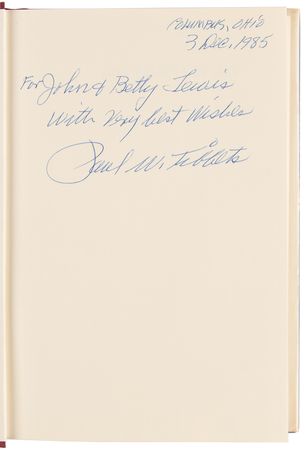 Columbus, Ohio
3 Dec, 1985
For John & Betty Lewis
With Very best Wishes
Paul W. Tibbets